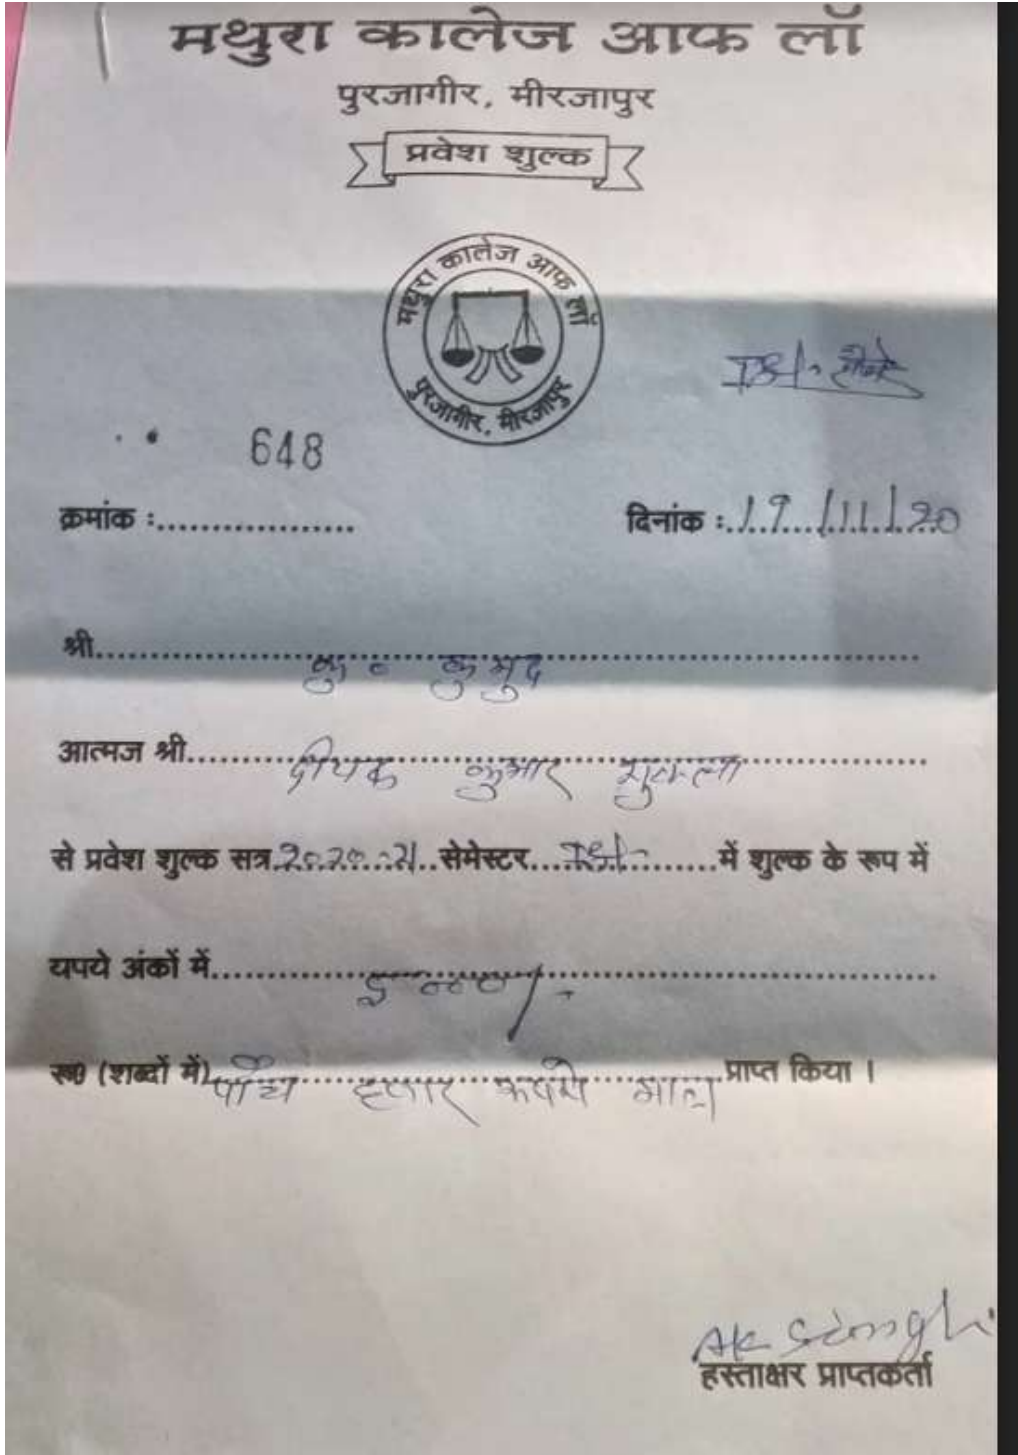 मथुरा कालेज आफ लॉ
पुरजागीर, मीरजापुर
प्रवेश शुल्क
मथुरा कालेज आफ लॉ
पुरजागीर, मीरजापुर
Ist
648
क्रमांक :..................
दिनांक : 19/11/20
श्री कु० कुमुद
आत्मज श्री दीपक कुमार शुक्ला
से प्रवेश शुल्क सत्र 2020-21 सेमेस्टर Ist में शुल्क के रूप में
यपये अंकों में 5000/-
रू0 (शब्दों में) पाँच हजार रूपये मात्र प्राप्त किया ।
हस्ताक्षर प्राप्तकर्ता